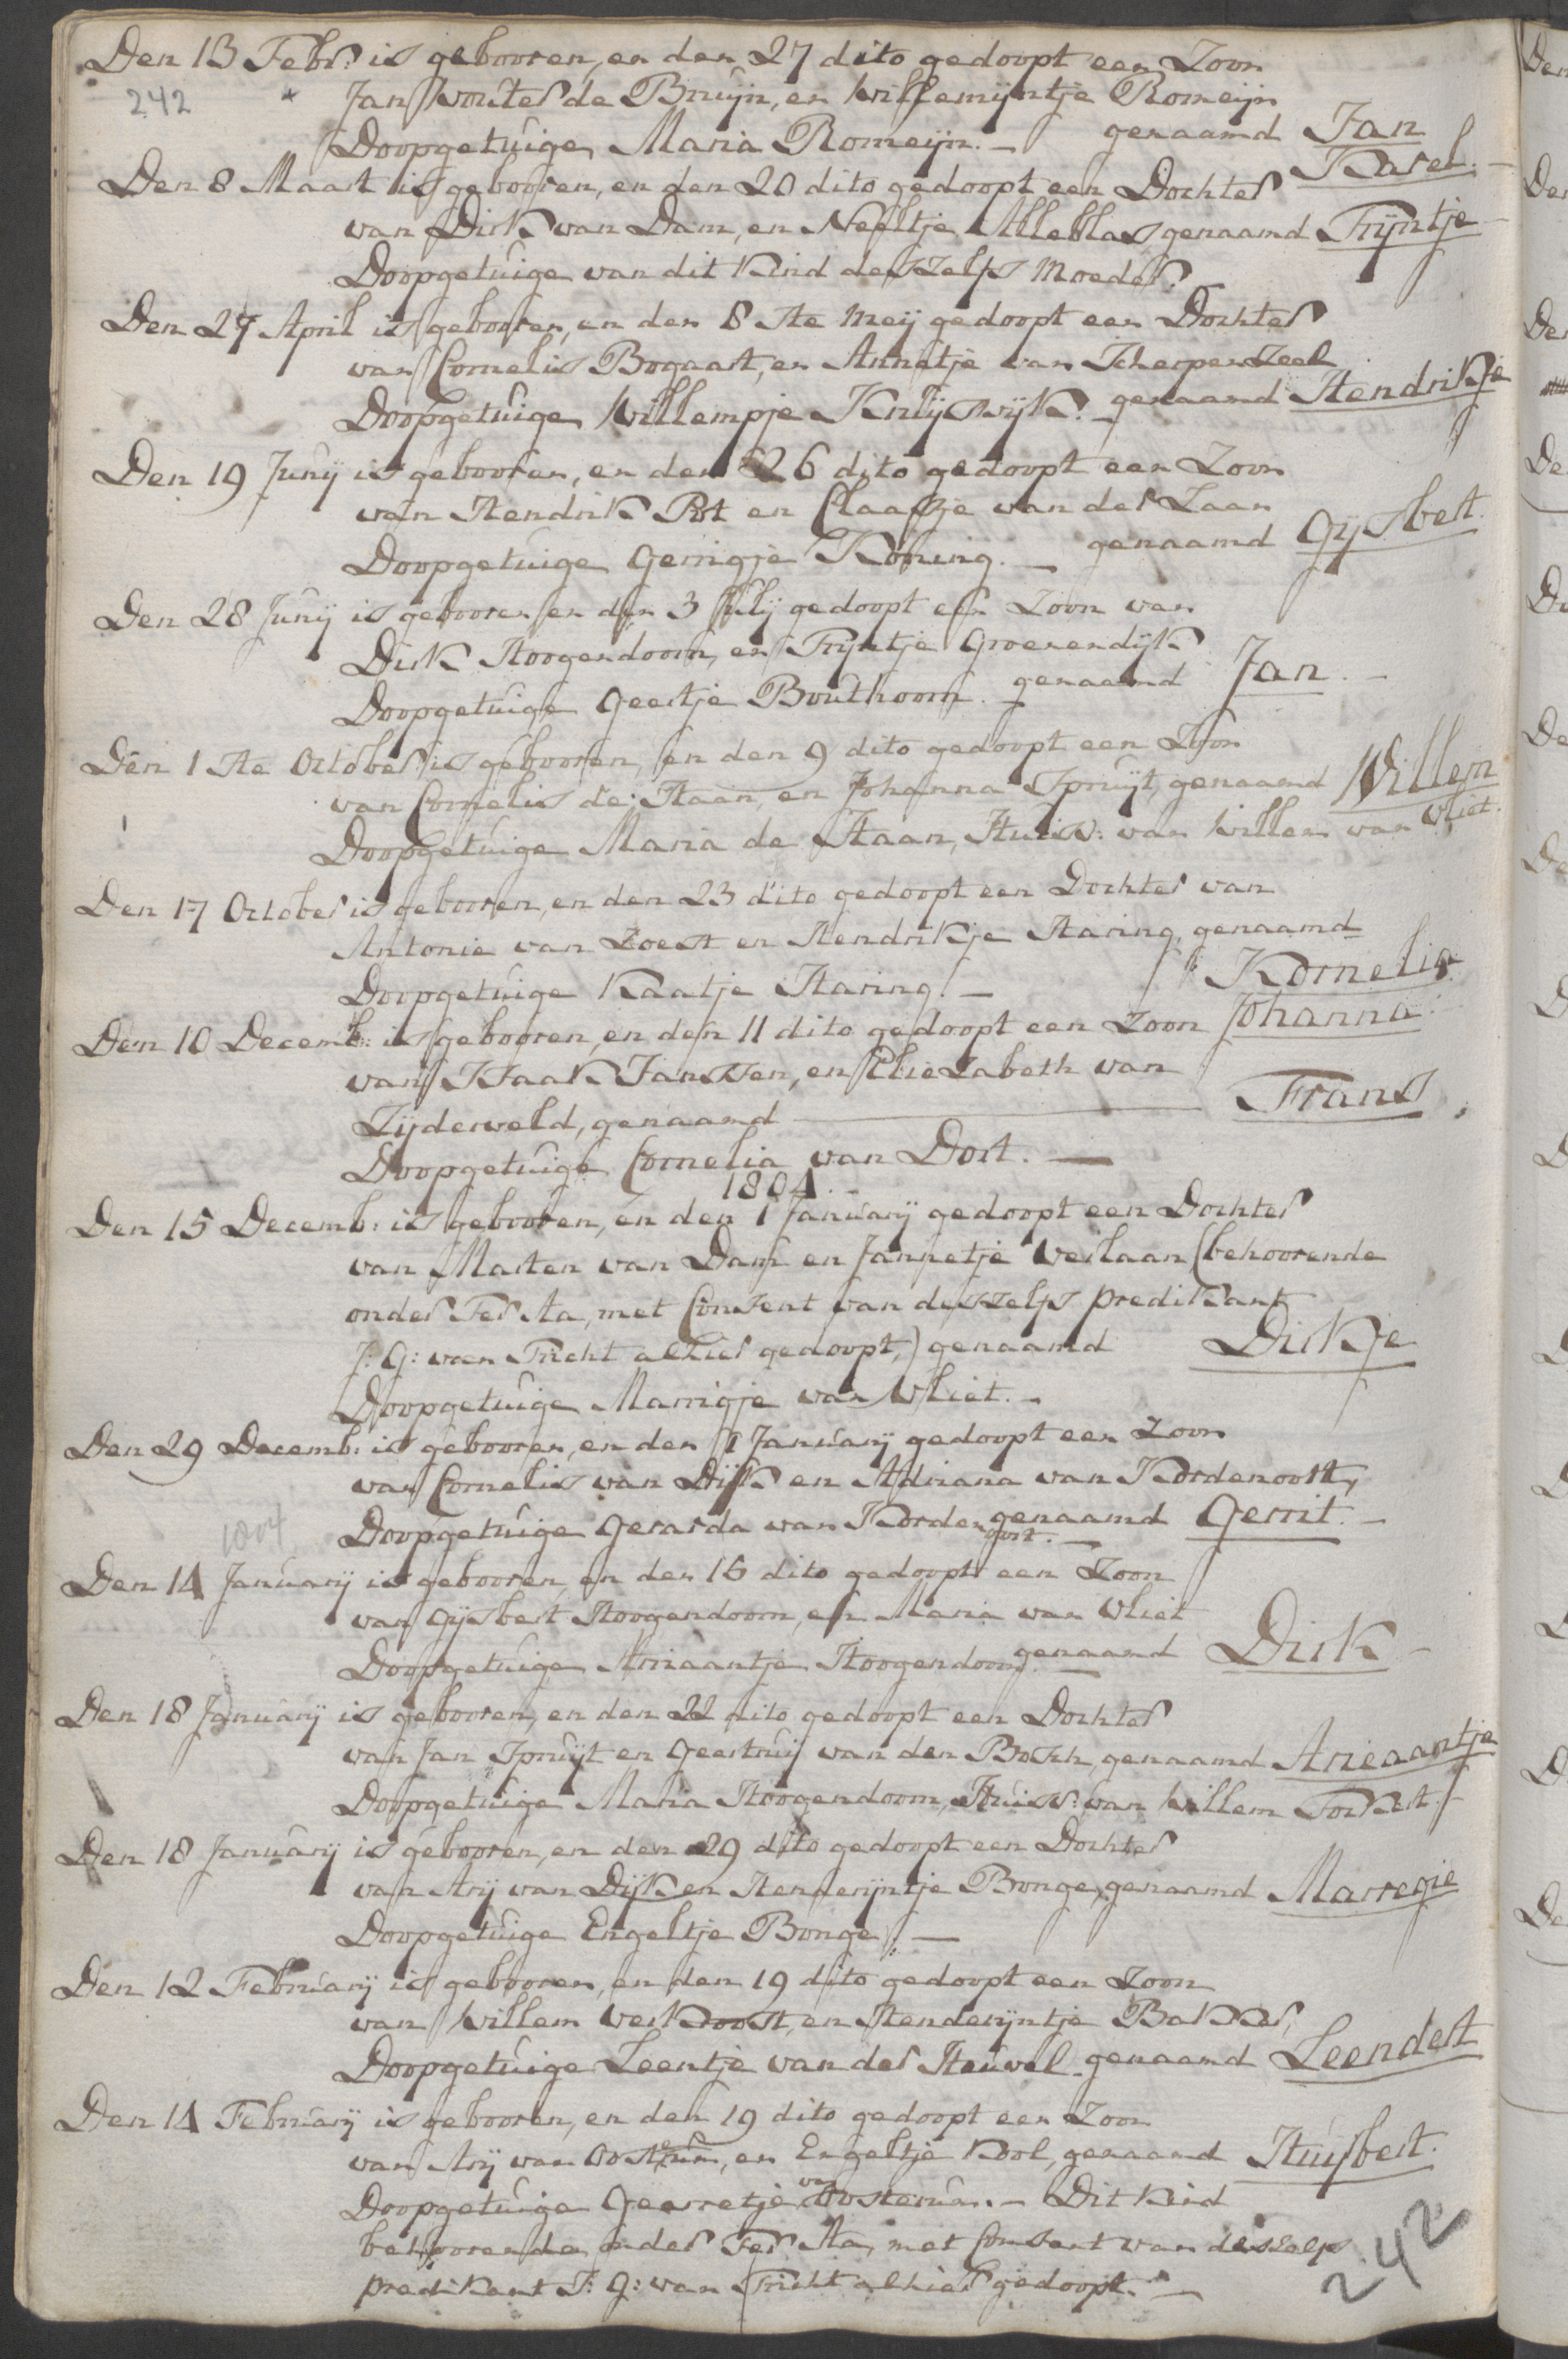 Den 13 Febr: is gebooren, en den 27 dito gedoopt een Zoon
242 * Jan Wouter de Bruijn, en Willemijntje Romeijn
Doopgetuige Maria Romeijn. — genaamd Jan
Karel. —
Den 8 Maart is gebooren, en den 20 dito gedoopt een Dochter
van Dirk van Dam, en Neeltje Alleblas, genaamd Trijntje —
Doopgetuige van dit Kind deszelfs Moeder.
Den 27 April is gebooren, en den 8ste Meij gedoopt een Dochter
van Cornelis Bogaart, en Annetje van Scherpenzeel
Doopgetuige Willempje Kruijswijk. — genaamd Hendrikje
Den 19 Junij is gebooren, en den 26 dito gedoopt een Zoon
van Hendrik Pot en Claasje van der Laan
Doopgetuige Gerrigje Koning. — genaamd Gijsbert.
Den 28 Junij is gebooren en den 3 Julij gedoopt een Zoon van
Dirk Hoogendoorn, en Trijntje Groenendijk
Doopgetuige Geertje Bouthoorn. genaamd Jan. —
Den 1ste October is gebooren, en den 9 dito gedoopt een Zoon
van Cornelis de Haan, en Johanna Spruijt, genaamd Willem
Doopgetuige Maria de Haan, Huisv: van Willem van Vliet.
Den 17 October is gebooren, en den 23 dito gedoopt een Dochter van
Antonie van Zoest en Hendrikje Haring, genaamd
Doopgetuige Kaatje Haring. — Kornelia
Johanna.
Den 10 Decemb: is gebooren, en den 11 dito gedoopt een Zoon
van Isaak Janssen, en Eliezabeth van
Zijderveld, genaamd — Frans
Doopgetuige Cornelia van Dort. —
1804.
Den 15 Decemb: is gebooren, en den 1 Januarij gedoopt een Dochter
van Marten van Dam en Jannetje Verlaan (behoorende
onder Ter Aa, met Consent van deszelfs predikant
J: G: van Tricht alhier gedoopt,) genaamd Dirkje
Doopgetuige Marrigje van Vliet. —
Den 29 Decemb: is gebooren, en den 1 Januarij gedoopt een Zoon
van Cornelis van Dijk en Adriana van Kordenoort,
Doopgetuige Gerarda van Kordenoort. — genaamd Gerrit. —
1804
Den 14 Januarij is gebooren, en den 15 dito gedoopt een Zoon
van Gijsbert Hoogendoorn, en Maria van Vliet
Doopgetuige Ariaantje Hoogendoorn. — genaamd Dirk —
Den 18 Januarij is gebooren, en den 22 dito gedoopt een Dochter
van Jan Spruijt en Geertruij van den Bosch, genaamd Arieaantje
Doopgetuige Maria Hoogendoorn, Huisv: van Willem
Den 18 Januarij is gebooren, en den 29 dito gedoopt een Dochter
van Arij van Dijk en Henderijntje Bonge, genaamd Marregie
Doopgetuige Engeltje Bonge. —
Den 12 Februarij is gebooren, en den 19 dito gedoopt een Zoon
van Willem Verkroost, en Henderijntje Bakker,
Doopgetuige Leentje van der Heuvel. genaamd Leendert
Den 14 Februarij is gebooren, en den 19 dito gedoopt een Zoon
van Arij van Oosterum, en Engeltje Kool, genaamd Huijbert.
Doopgetuige Geerretje van Oosterum. — Dit Kind
behoorende onder Ter Aa, met Consent van deszelfs
predikant J: G: van Tricht alhier gedoopt. —
242